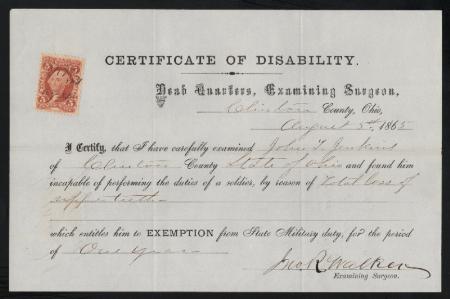 CERTIFICATE OF DISABILITY.
Head Quarters, Examining Surgeon,
Clinton County, Ohio,
August 5th, 1865
I Certify, that I have carefully examined John T. Jenkins
of Clinton County State of Ohio and found him
incapable of performing the duties of a soldier, by reason of total loss of
upper teeth
which entitles him to EXEMPTION from State Military duty, for the period
of One year
Jno R. Walker
Examining Surgeon.